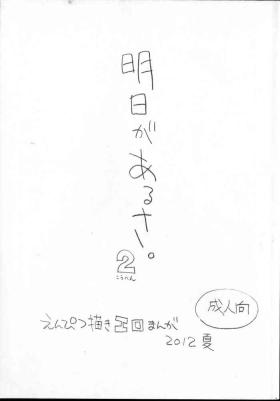 明日があるさ。
2
こうへん
成人向
えんぴつ描き2回まんが
2012夏